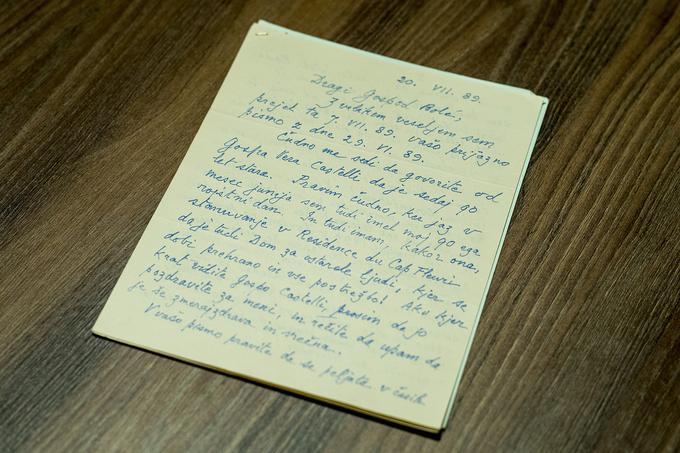 20. VII. 89.
Dragi Gospod Bolé,
Z velikem veseljem sem
prejel ta 7. VII. 89. vašo prijazno
pismo z dne 29. VI. 89.
Čudno me zdi da govorite od
Gospa Vera Castelli da je sedaj 90
let stara. Pravim čudno, ker jaz v
mesec junija sem tudi imel moj 90 ega
rojstni dan. In tudi imam, kakor ona,
stanuvanje v Residence du Cap Fleuri
da je tudi Dom za ostarele ljudi, kjer se
dobi prehrano in vse postrežbo! Ako kjer
krat vidite Gospo Castelli prosim da jo
pozdravite za meni, in rečite da upam da
je še zmeraj zdrava in srečna.
V vašo pismo pravite da se peljate v